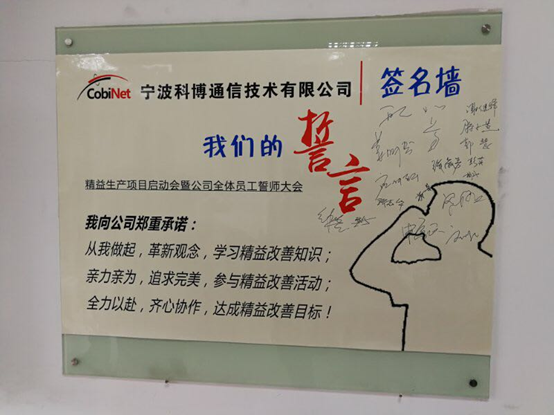 CobiNet 宁波科博通信技术有限公司 签名墙
我们的誓言
精益生产项目启动会暨公司全体员工誓师大会
我向公司郑重承诺：
从我做起，革新观念，学习精益改善知识；
亲力亲为，追求完美，参与精益改善活动；
全力以赴，齐心协作，达成精益改善目标！